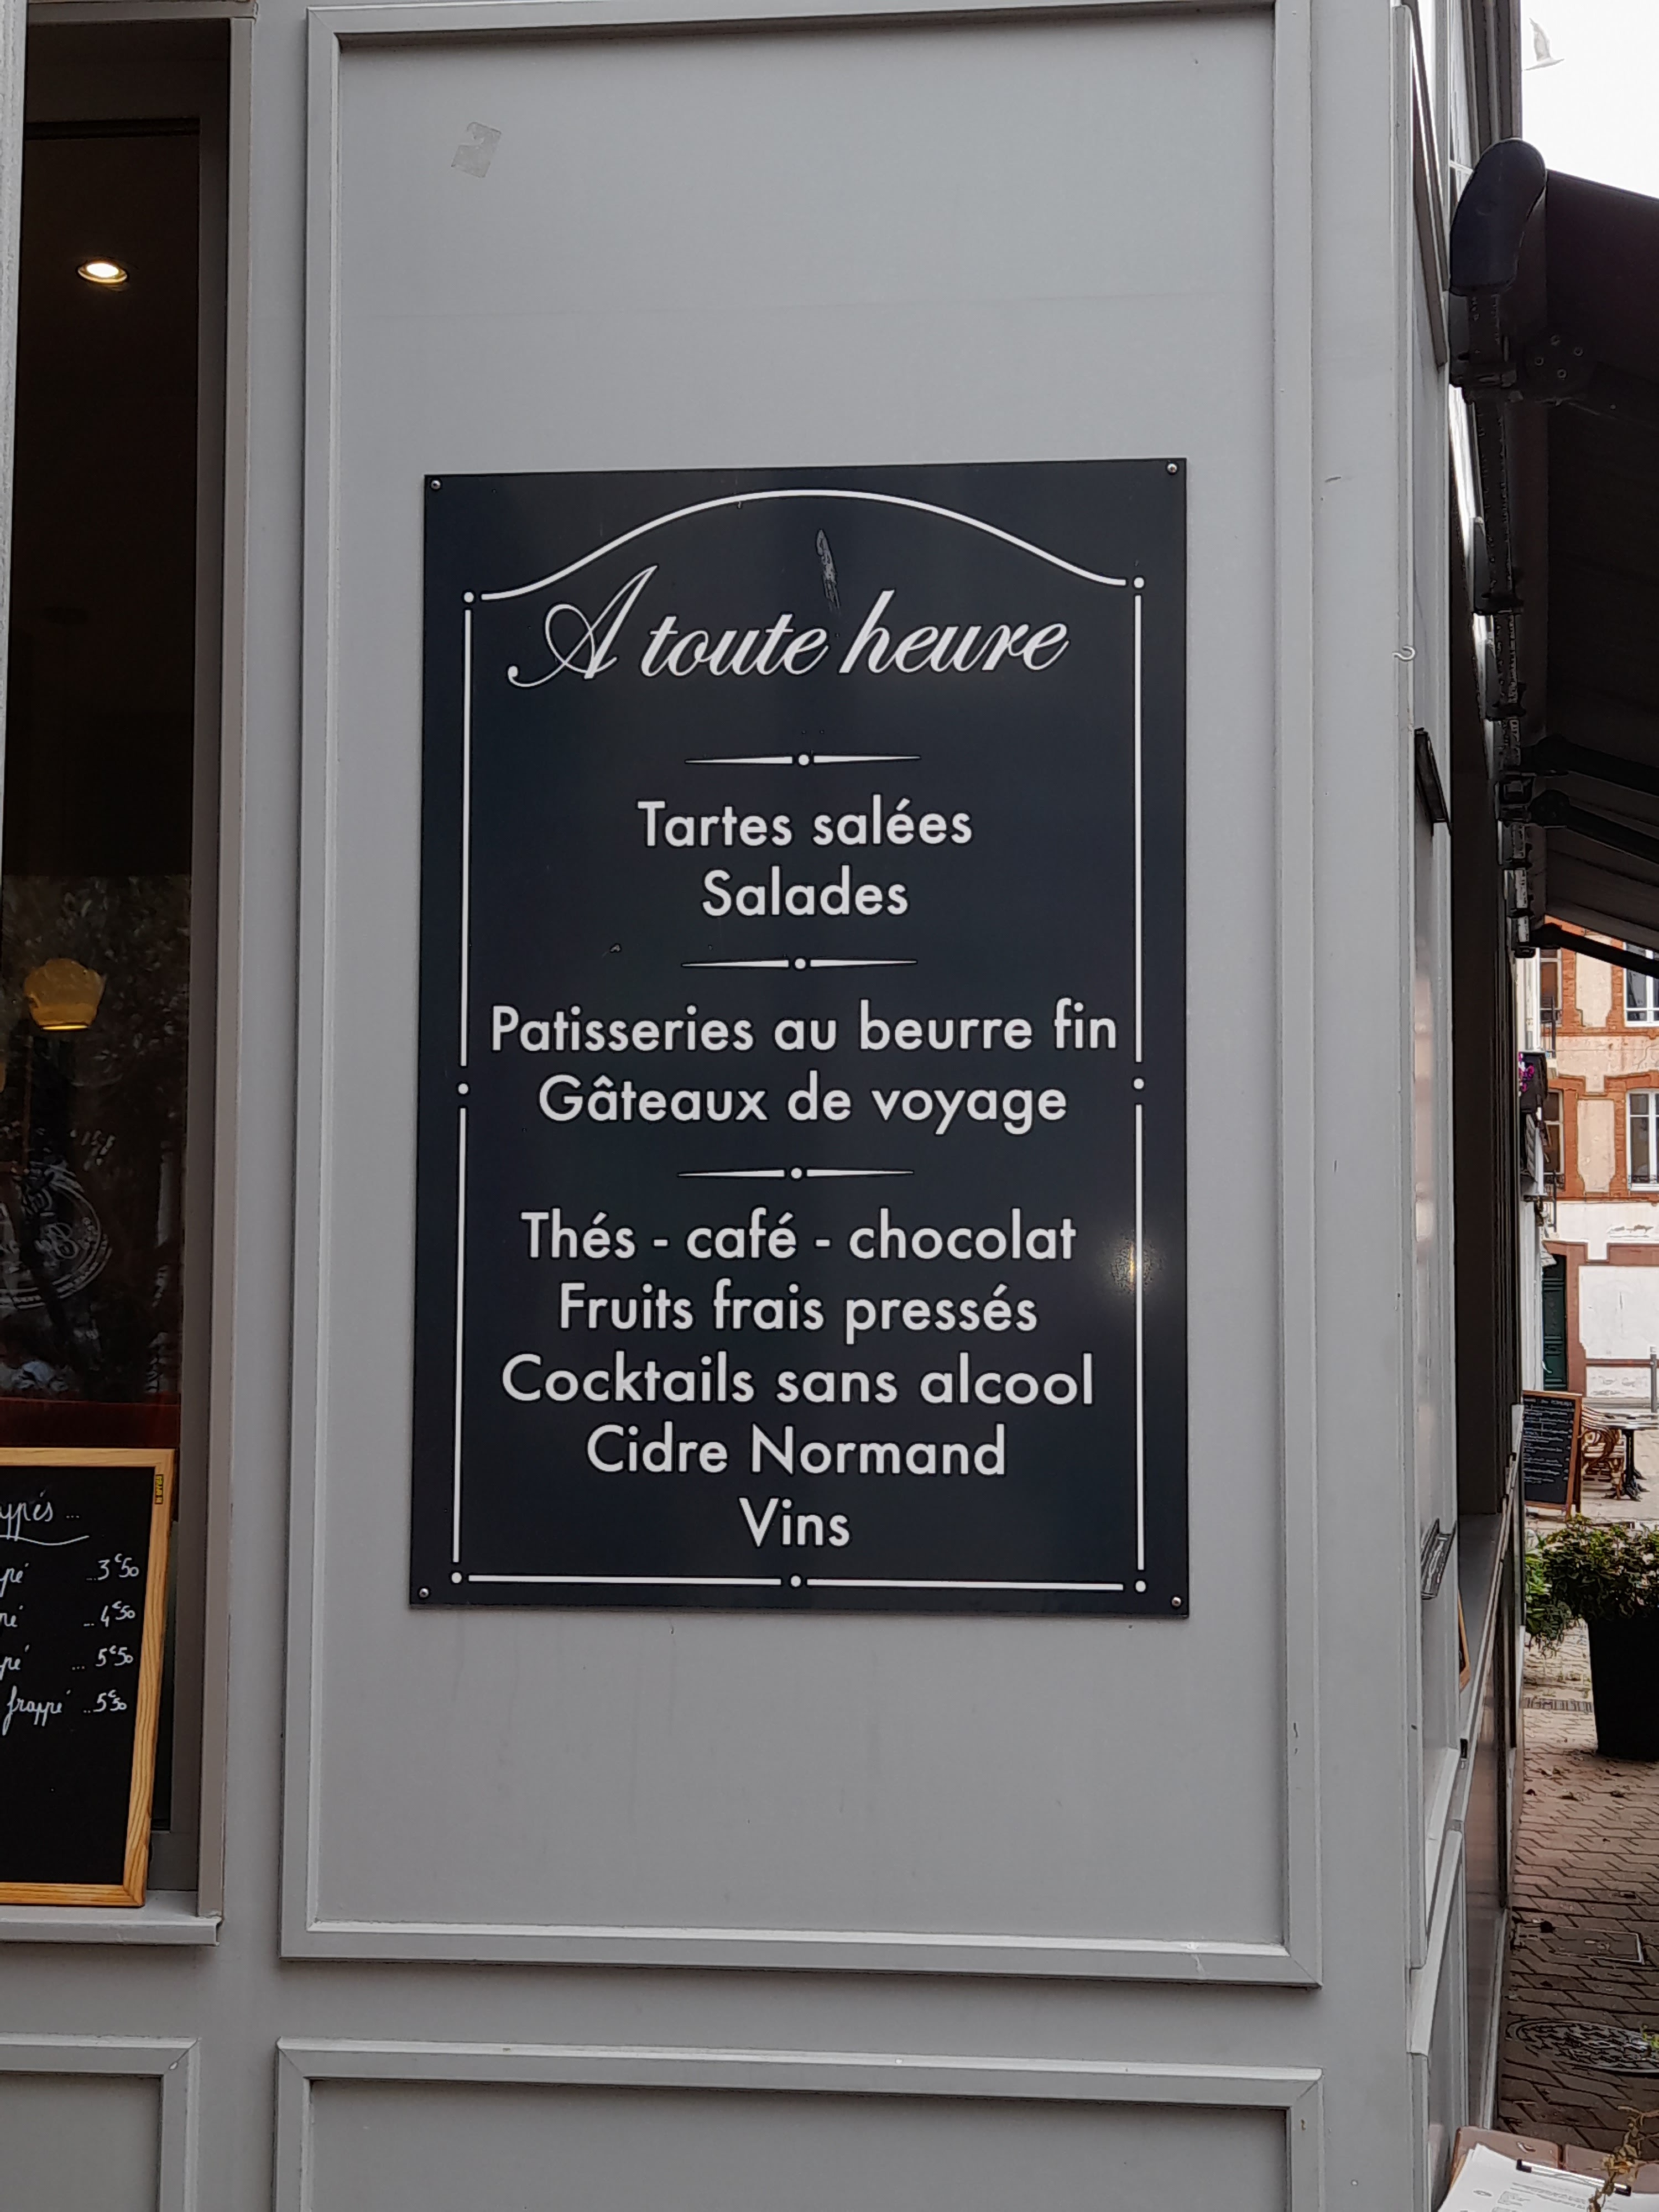 A toute heure
Tartes salées
Salades
Patisseries au beurre fin
Gâteaux de voyage
Thés - café - chocolat
Fruits frais pressés
Cocktails sans alcool
Cidre Normand
Vins
...3€50
...4€50
... 5€50
frappé ...5€50